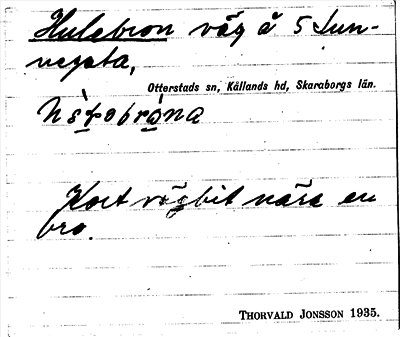 Hulebron väg å 5 Sun-
nersta,
Otterstads sn, Kållands hd, Skaraborgs län.
Kort vägbit nära en
bro.
THORVALD JONSSON 1935.